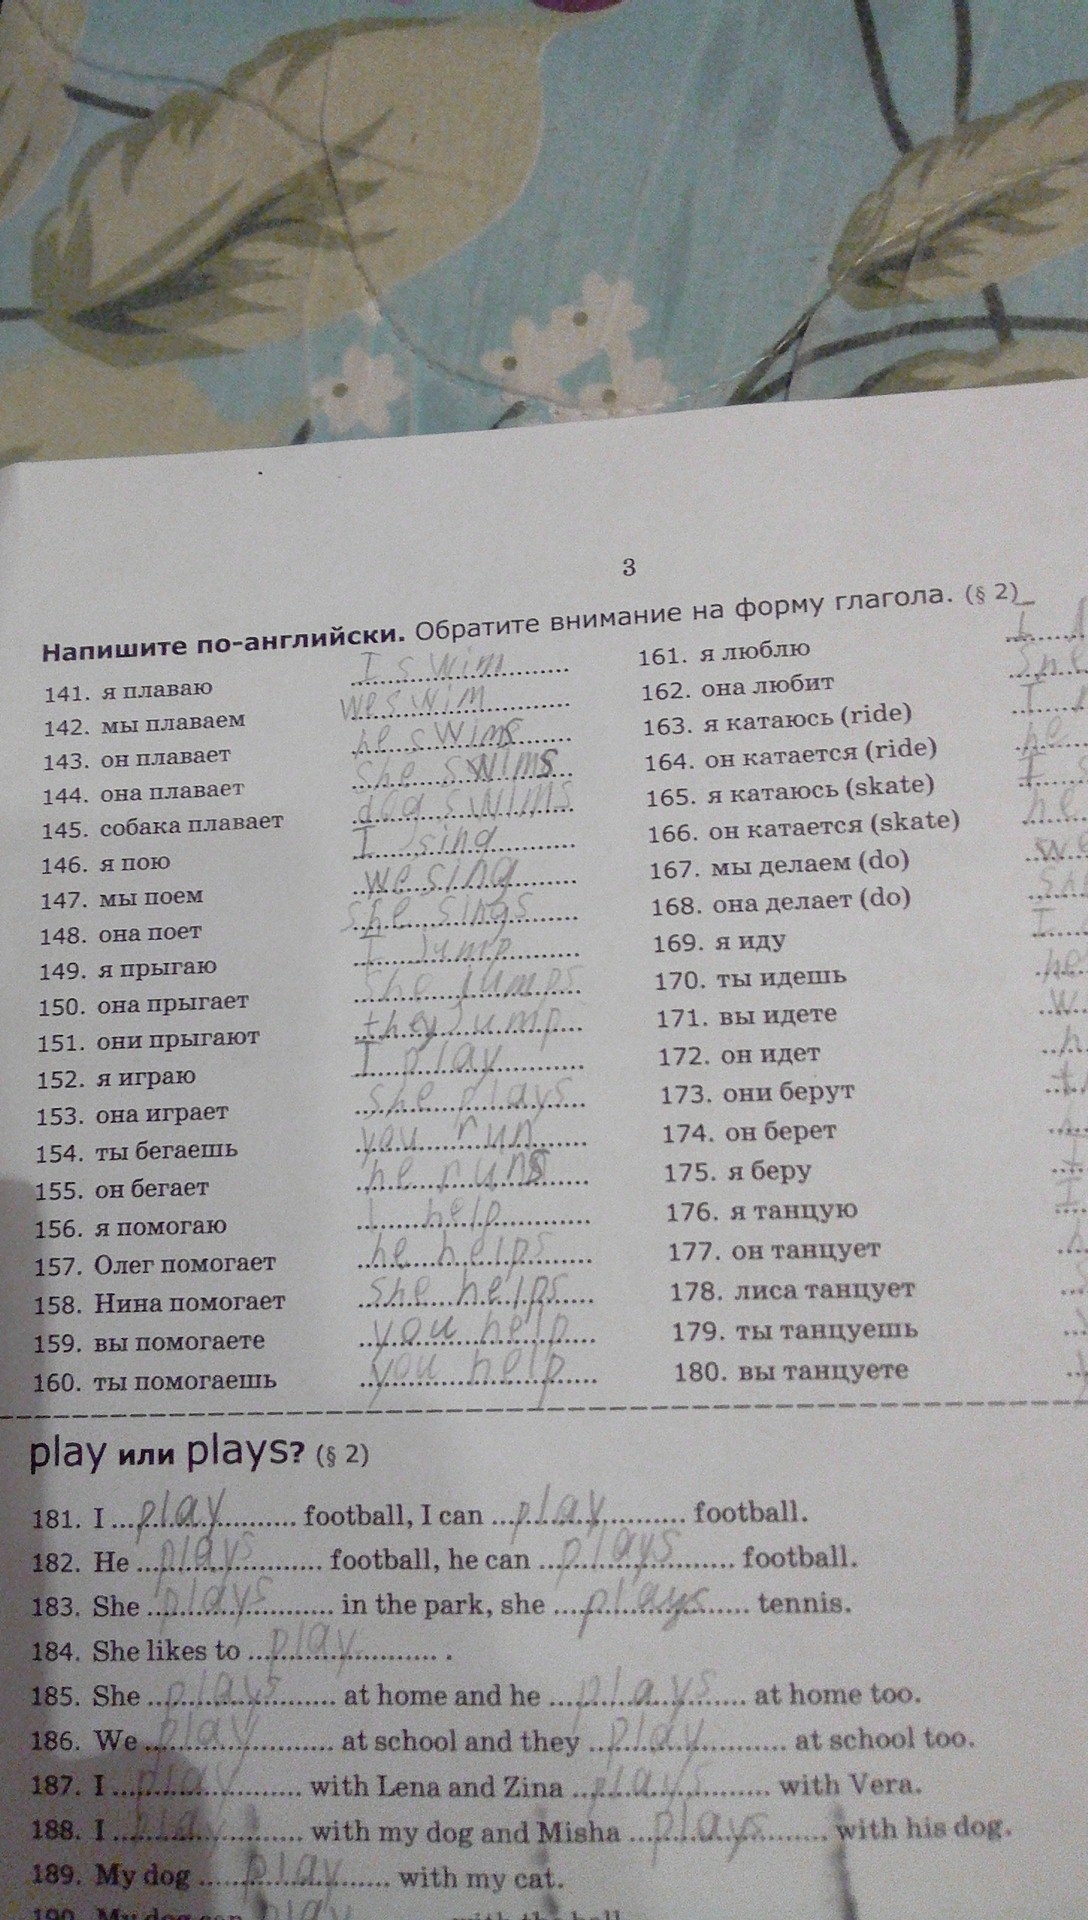 3
Напишите по-английски. Обратите внимание на форму глагола. (§ 2)
141. я плаваю I swim
142. мы плаваем we swim
143. он плавает he swims
144. она плавает she swims
145. собака плавает dog swims
146. я пою I sing
147. мы поем we sing
148. она поет she sings
149. я прыгаю I jump
150. она прыгает she jumps
151. они прыгают they jump
152. я играю I play
153. она играет she plays
154. ты бегаешь you run
155. он бегает he runs
156. я помогаю I help
157. Олег помогает he helps
158. Нина помогает she helps
159. вы помогаете you help
160. ты помогаешь you help
161. я люблю I
162. она любит she
163. я катаюсь (ride) I
164. он катается (ride) he
165. я катаюсь (skate) I
166. он катается (skate) he
167. мы делаем (do) we
168. она делает (do) she
169. я иду I
170. ты идешь he
171. вы идете
172. он идет
173. они берут
174. он берет
175. я беру I
176. я танцую I
177. он танцует
178. лиса танцует
179. ты танцуешь
180. вы танцуете
play или plays? (§ 2)
181. I play football, I can play football.
182. He plays football, he can plays football.
183. She plays in the park, she plays tennis.
184. She likes to play .
185. She plays at home and he plays at home too.
186. We play at school and they play at school too.
187. I play with Lena and Zina plays with Vera.
188. I play with my dog and Misha plays with his dog.
189. My dog play with my cat.
190. My dog can play with the ball